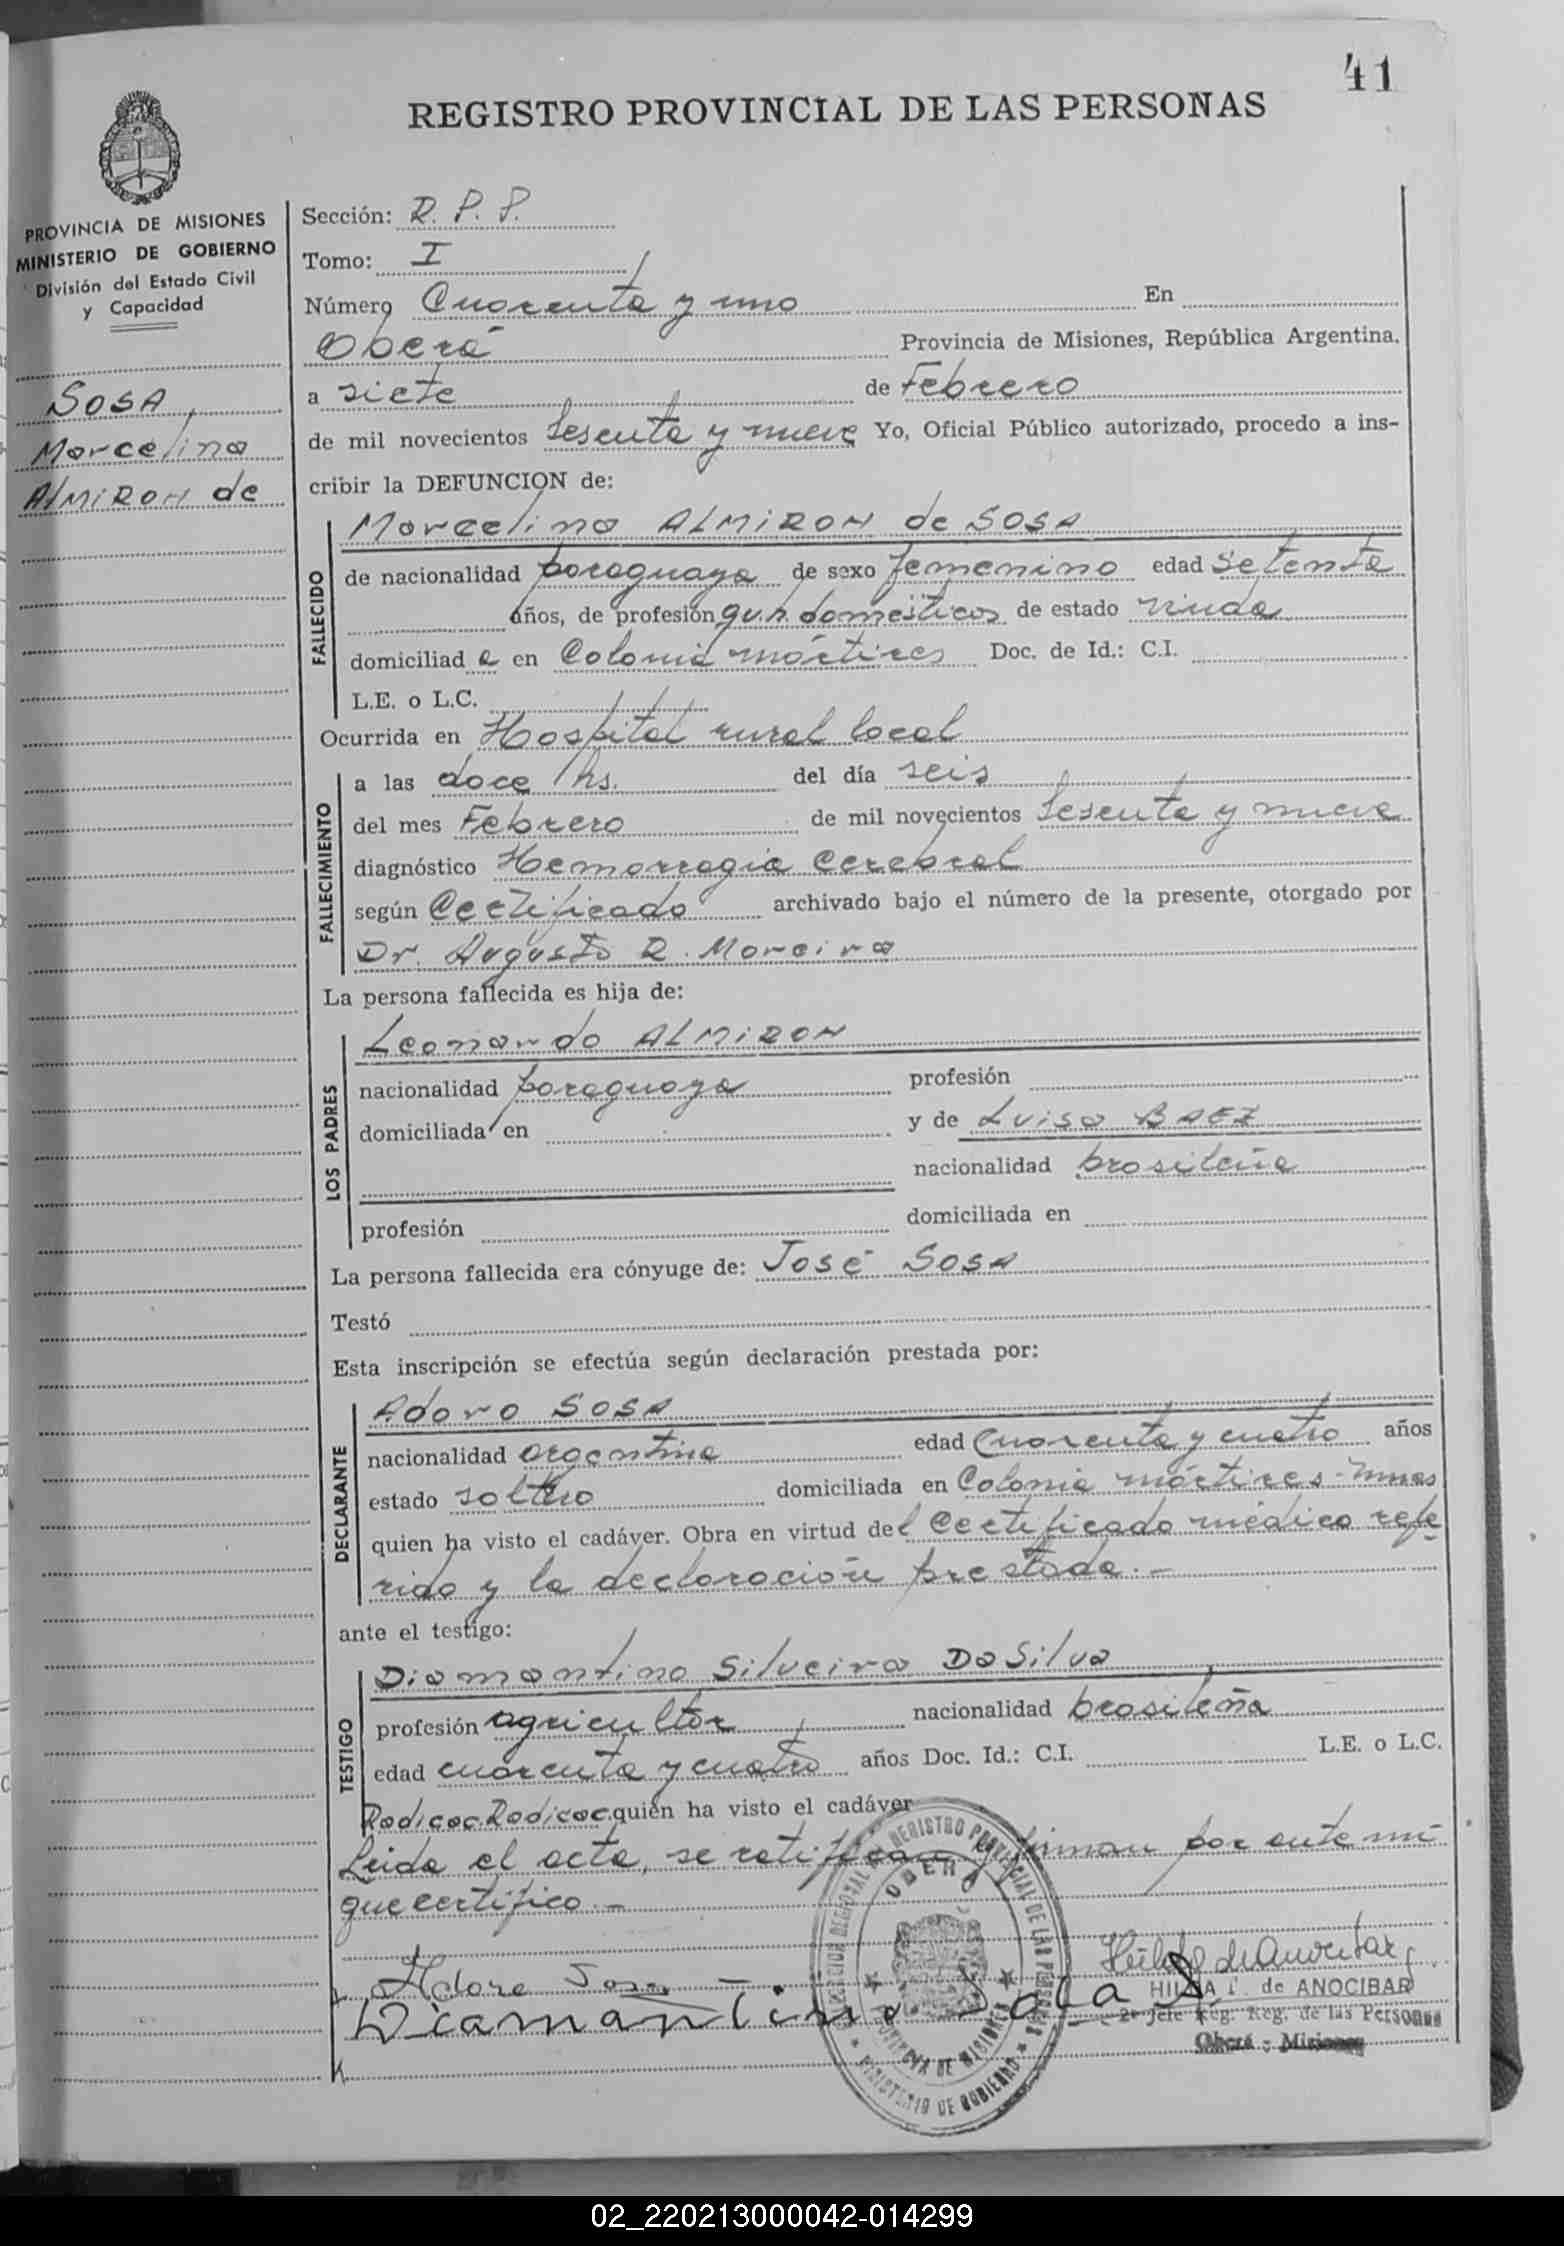 41
REGISTRO PROVINCIAL DE LAS PERSONAS
PROVINCIA DE MISIONES
MINISTERIO DE GOBIERNO
División del Estado Civil
y Capacidad
SOSA,
Marcelina
ALMIRON de
Sección: R. P. P.
Tomo: I
Número Cuarenta y uno En
Oberá Provincia de Misiones, República Argentina,
a siete de Febrero
de mil novecientos sesenta y nueve Yo, Oficial Público autorizado, procedo a ins-
cribir la DEFUNCION de:
FALLECIDO
Marcelina ALMIRON de SOSA
de nacionalidad paraguaya de sexo femenino edad setenta
años, de profesión qu.h. domésticos de estado viuda
domiciliad a en Colonia mártires Doc. de Id.: C.I.
L.E. o L.C.
Ocurrida en Hospital rural local
FALLECIMIENTO
a las doce hs. del día seis
del mes Febrero de mil novecientos sesenta y nueve
diagnóstico Hemorragia Cerebral
según Certificado archivado bajo el número de la presente, otorgado por
Dr. Augusto R. Moreira
La persona fallecida es hija de:
LOS PADRES
Leonardo ALMIRON
nacionalidad paraguaya profesión
domiciliada en y de Luisa BAEZ
nacionalidad brasileña
profesión domiciliada en
La persona fallecida era cónyuge de: José SOSA
Testó
Esta inscripción se efectúa según declaración prestada por:
DECLARANTE
Adoro SOSA
nacionalidad argentina edad Cuarenta y cuatro años
estado soltero domiciliada en Colonia mártires-Mnes
quien ha visto el cadáver. Obra en virtud del Certificado médico refe
rido y la declaración prestada.-
ante el testigo:
TESTIGO
Diamantino Silveira Da Silva
profesión agricultor nacionalidad brasileña
edad cuarenta y cuatro años Doc. Id.: C.I. L.E. o L.C.
Radicac. Radicac. quién ha visto el cadáver
Leida el acta, se ratifican y firman por ante mi
que certifico.-
Adoro Sosa
Diamantino
HILDA de ANOCIBAR
2º Jefe Reg. Reg. de las Personas
Oberá - Misiones
REGISTRO PROVINCIAL DE LAS PERSONAS
OBERÁ
PROVINCIA DE MISIONES
MINISTERIO DE GOBIERNO
02_220213000042-014299